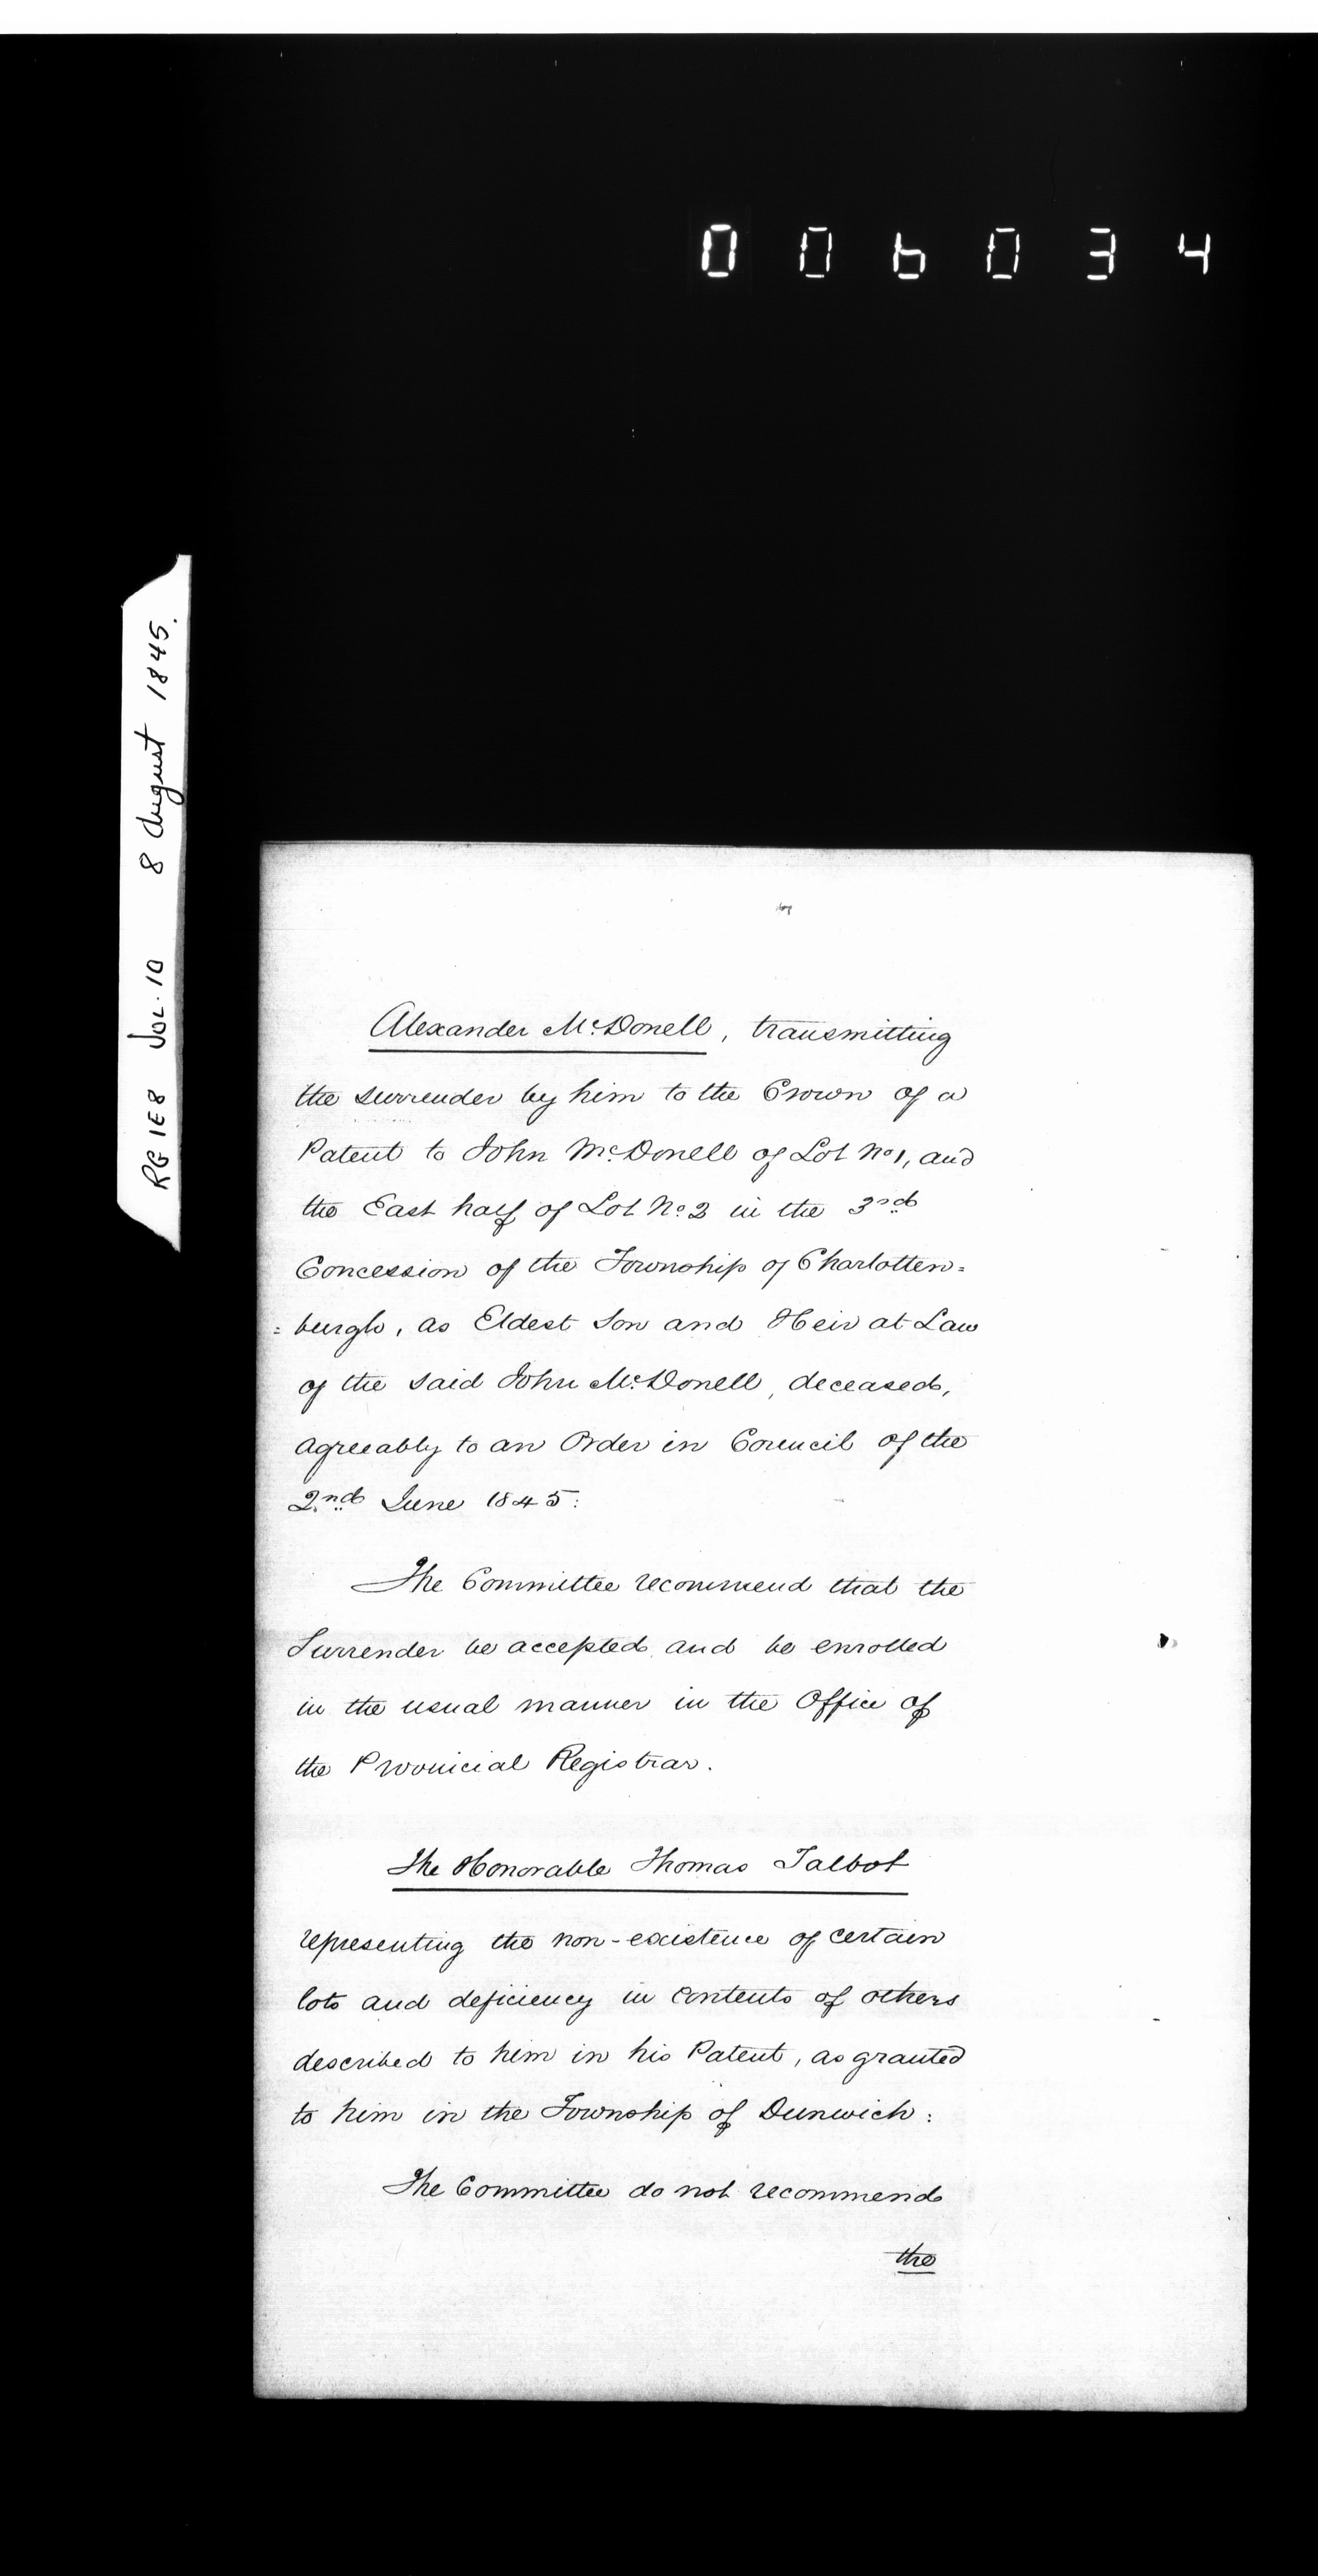 006034
RG 1E8 VOL. 10 8 August 1845.
Alexander McDonell, transmitting
the surrender by him to the Crown of a
Patent to John McDonell of Lot No 1, and
the East half of Lot No 2 in the 3rd
Concession of the Township of Charlotten=
=burgh, as Eldest Son and Heir at Law
of the said John McDonell, deceased,
agreeably to an Order in Council of the
2nd June 1845:
The Committee recommend that the
Surrender be accepted and be enrolled
in the usual manner in the Office of
the Provincial Registrar.
The Honorable Thomas Talbot
representing the non-existence of certain
lots and deficiency in contents of others
described to him in his Patent, as granted
to him in the Township of Dunwich:
The Committee do not recommend
the